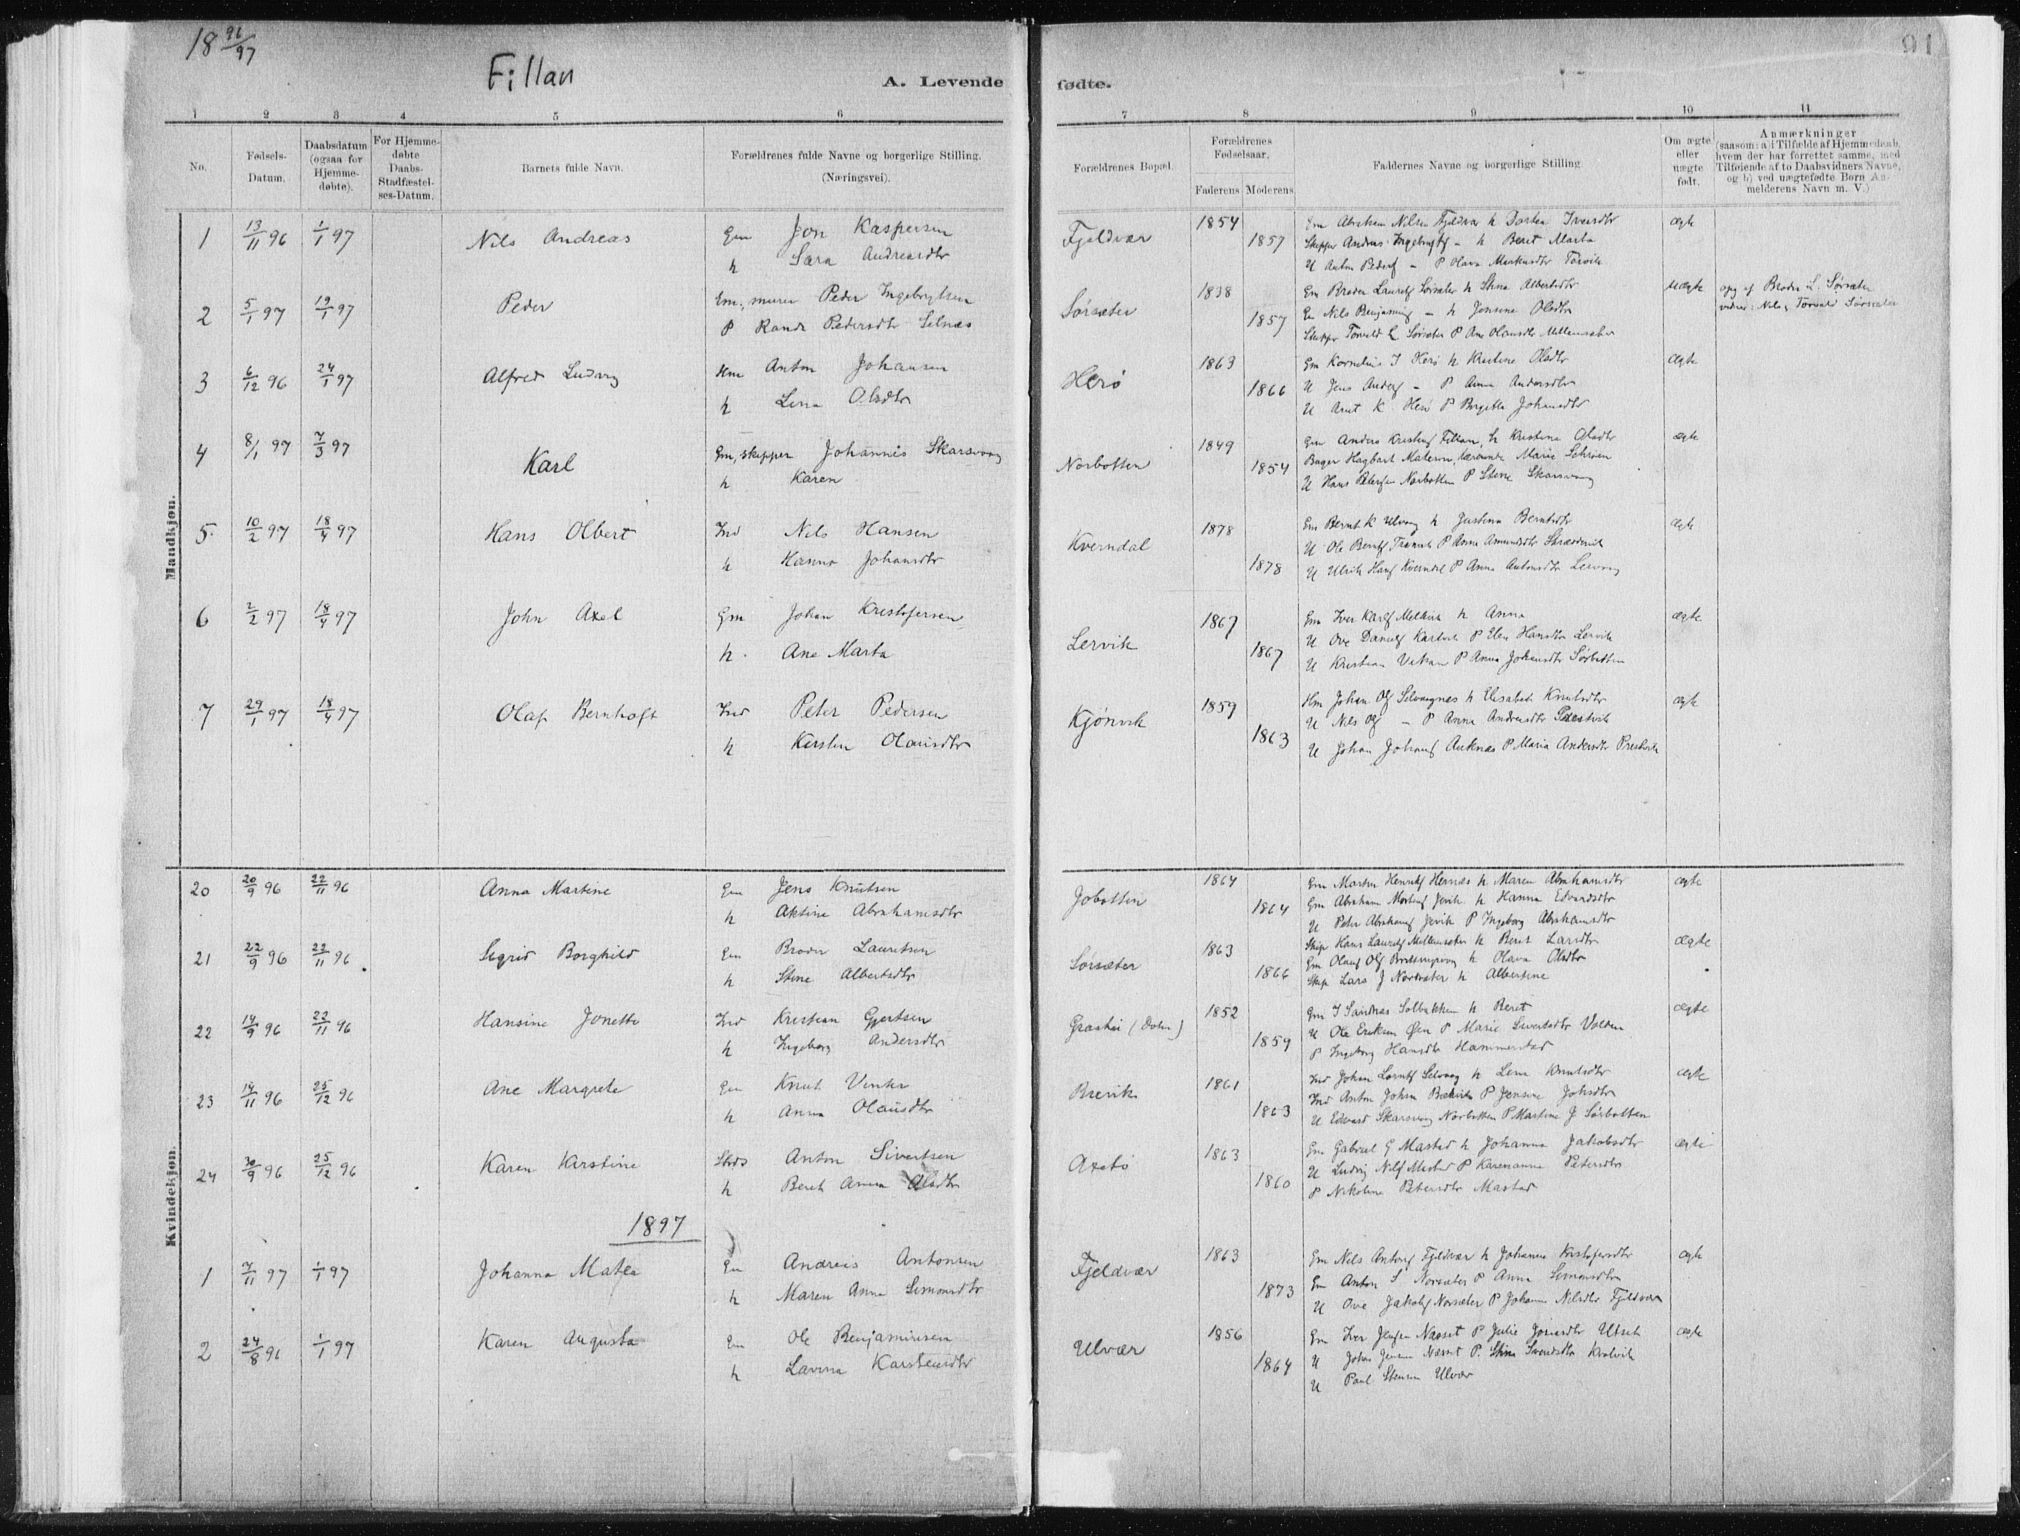 18 96/97
Fillan
A. Levende fødte.
91
1 2 3 4 5 6 7 8 9 10 11
No.
Fødsels-Datum.
Daabsdatum (ogsaa for Hjemme-døbte).
For Hjemme-døbte Daabs-Stadfæstel-ses-Datum.
Barnets fulde Navn.
Forældrenes fulde Navne og borgerlige Stilling. (Næringsvei).
Forældrenes Bopæl.
Forældrenes Fødselsaar.
Faderens Moderens
Faddernes Navne og borgerlige Stilling
Om ægte eller uægte født.
Anmærkninger (saasom: a) i Tilfælde af Hjemmedaab, hvem der har forrettet samme, med Tilføiende af to Daabsvidners Navne, og b) ved uægtefødte Børn Anmelderens Navn m. V.)
Mandkjøn.
1 13/11 96 1/1 97 Nils Andreas Gm Jon Kaspersen Fjeldvær 1854 Gm Abraham Nilsen Fjeldvær h Dortea Iversdtr ægte
h Sara Andreasdtr 1857 Skipper Andreas Ingebrigtsf - h Beret Marta
U Anton Pedersf - P Olava Markusdtr Torvik
2 5/1 97 19/1 97 Peder Em, murer Peder Ingebrigtsen Sørsæter 1838 Gm Broder Lauritsf Sørsæter h Stine Albertsdtr uægte opg af Broder L. Sørsæter
P Randi Pedersdtr Selnæs 1857 Gm Nils Benjaminsf - h Jensine Olsdtr vidner: Nils, Torvald Sørsæter
Skipper Torvald L Sørsæter P Ane Olausdtr Mellemsæter
3 6/12 96 24/1 97 Alfred Ludvig Hm Anton Johansen Herø 1863 Gm Kornelius J Herø h Kristine Olsdtr ægte
h Lina Olsdtr 1866 U Jens Andersf - P Anna Andersdtr
U Arnt K Herø P Bergitta Johansdtr
4 8/1 97 7/3 97 Karl Gm, skipper Johannis Skarsvaag Norbotten 1849 Gm Anders Kristensf Fillan, h Kristine Olsdtr ægte
h Karen 1854 Bager Hagbart Mateson, lærerinde Marie Schrøen
U Hans Petersen Norbotten P Stine Skarsvaag
5 10/2 97 18/4 97 Hans Olbert Ind Nils Hansen Kverndal 1878 Gm Bernt K Ulvaag h Justina Berntsdtr ægte
h Hanna Johansdtr 1878 U Ole Berntsf P Anna Amundsdtr
U Ulrik Hansf Kverndal P Anna Antonsdtr Lervaag
6 2/2 97 18/4 97 John Axel Gm Johan Kristofersen Lervik 1867 Gm Iver Karlsf h Anna ægte
h. Ane Marta 1867 U Ove Danielsf P Elen Hansdtr Lervik
U Kristian Vikan P Anna Johansdtr Sørbotten
7 29/1 97 18/4 97 Olaf Bernhoft Ind Peter Pedersen Kjønvik 1859 Hm Johan Olsf Selvaagnes h Elisabet Knutsdtr ægte
h Kersten Olausdtr 1863 U Nils Olsf - P Anna Andersdtr
U Johan Johansf Auknæs P Maria Andersdtr Prestvik
Kvindekjøn.
20 20/9 96 22/11 96 Anna Martine Gm Jens Knutsen Jøbotten 1864 Gm Martin Henriksf Hernæs h Maren Abrahamsdtr ægte
h Aktine Abrahamsdtr 1864 Gm Abraham Mortensf Jøvik h Hanna Edvardsdtr
U Peter Abrahamsf Jøvik P Ingeborg Abrahamsdtr
21 22/9 96 22/11 96 Sigrid Borghild Gm Broder Lauritsen Sørsæter 1863 Skip Hans Lauritsf Mellemsæter h Beret Larsdtr ægte
h Stine Albertsdtr 1866 Gm Olaus Olsf h Olava Olsdtr
Skip Lars J Norsæter h Albertine
22 14/9 96 22/11 96 Hansine Jonette Ind Kristian Gjertsen Graahei (Dolm) 1852 Gm I Sandnes Solbakken h Beret ægte
h Ingeborg Andersdtr 1859 U Ole Eriksen Øen P Marie Sivertsdtr Valen
P Ingeborg Hansdtr Hammerstad
23 14/11 96 25/12 96 Ane Margrete Gm Knut Vinter Brevik 1861 Ind Johan Larntsf Selvaag h Lena Knutsdtr ægte
h Anna Olausdtr 1863 Ind Anton Johsen P Jensine Johsdtr
U Edvard Skarsvaag Norbotten P Martine J Sørbotten
24 30/9 96 25/12 96 Karen Kirstine Anton Sivertsen Axebø 1863 Gm Gabriel G Mastad h Johanna Jakobsdtr ægte
h Beret Anna Olsdtr 1860 U Ludvig Nilsf Mastad P Karenanna Petersdtr
P Nikoline Petersdtr Mastad
1897
1 7/11 97 1/1 97 Johanna Matea Gm Andreas Antonsen Fjeldvær 1863 Gm Nils Antonsf Fjeldvær h Johanna Kristofersdtr ægte
h Maren Anna Simonsdtr 1873 Gm Anton S Norsæter P Anna Simonsdtr
U Ove Jakobsf Norsæter P Johanna Nilsdtr Fjeldvær
2 24/8 96 1/1 97 Karen Augusta Gm Ole Benjaminsen Ulvær 1856 Gm Iver Jensen Næsset P Julie Jonasdtr Utset ægte
h Lavina Karstensdtr 1864 U Johs Jensen Næsset P. Stina Svendsdtr Kvalvik
U Paul Stensen Ulvær